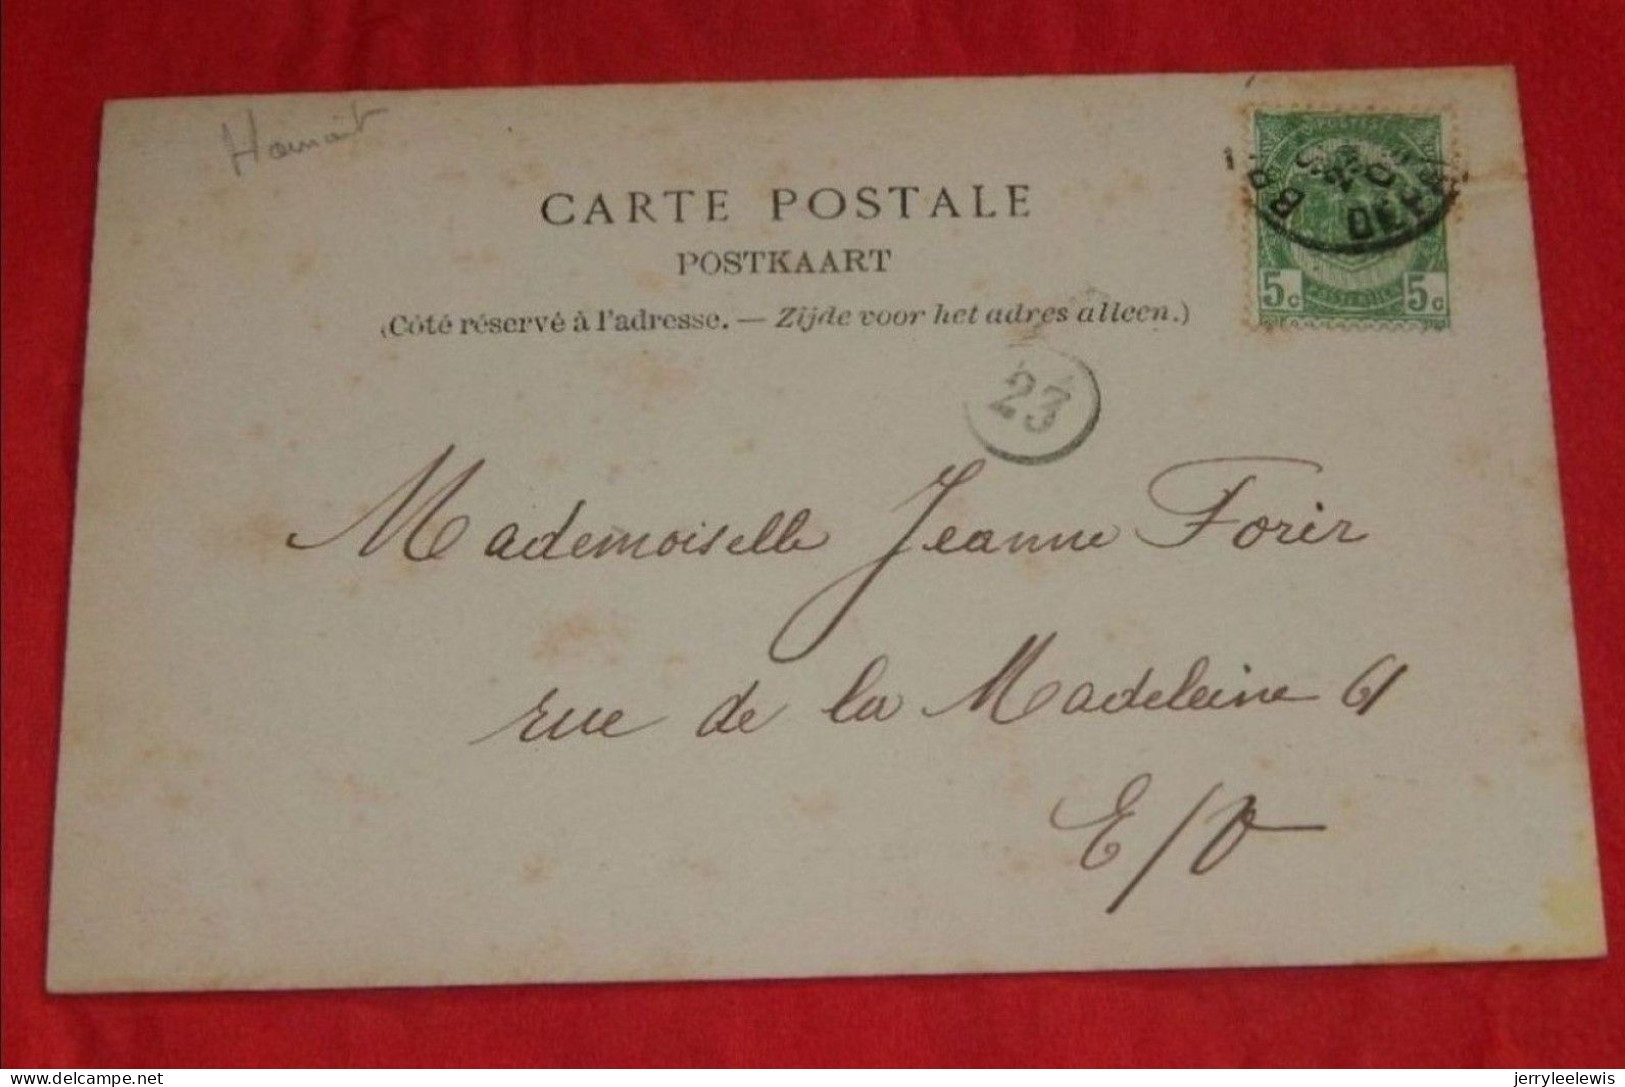 Hainaut
CARTE POSTALE
POSTKAART
(Côté réservé à l'adresse. — Zijde voor het adres alleen.)
5c 5c
DEPART
23
Mademoiselle Jeanne Forir
rue de la Madeleine 61
E/V
delcampe.net
jerryleelewis